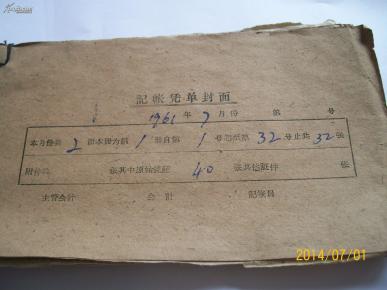 記帐凭单封面
1961年7月份 第 号
本月份共2册本册为第1册自第1号起至第32号止共32张
附件共 张其中原始凭証40张其他証件 张
主管会计 会计 記帐員
2014/07/01